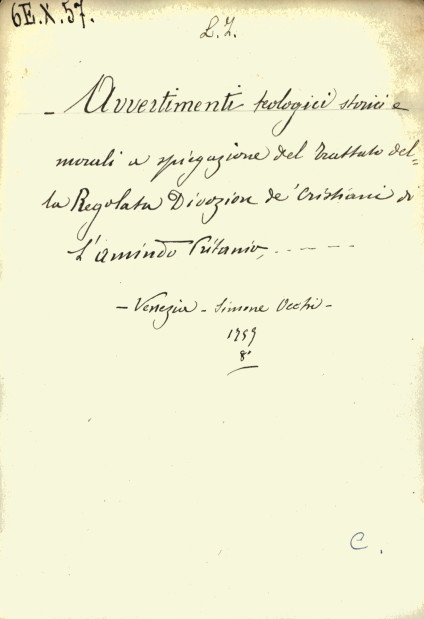 6E.X.57.
L. Z.
- Avvertimenti teologici storici e
morali a spiegazione del Trattato del=
la Regolata Divozion de' Cristiani di
L'amindo Pritanio, - - - - -
- Venezia - Simone Occhi -
1759
8°
C.